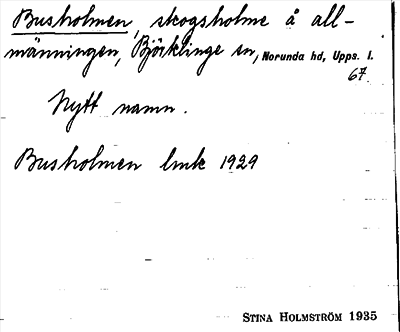 Busholmen, skogsholme å all-
männingen, Björklinge sn, Norunda hd, Upps. l.
67.
Nytt namn.
Busholmen lmk 1929
STINA HOLMSTRÖM 1935